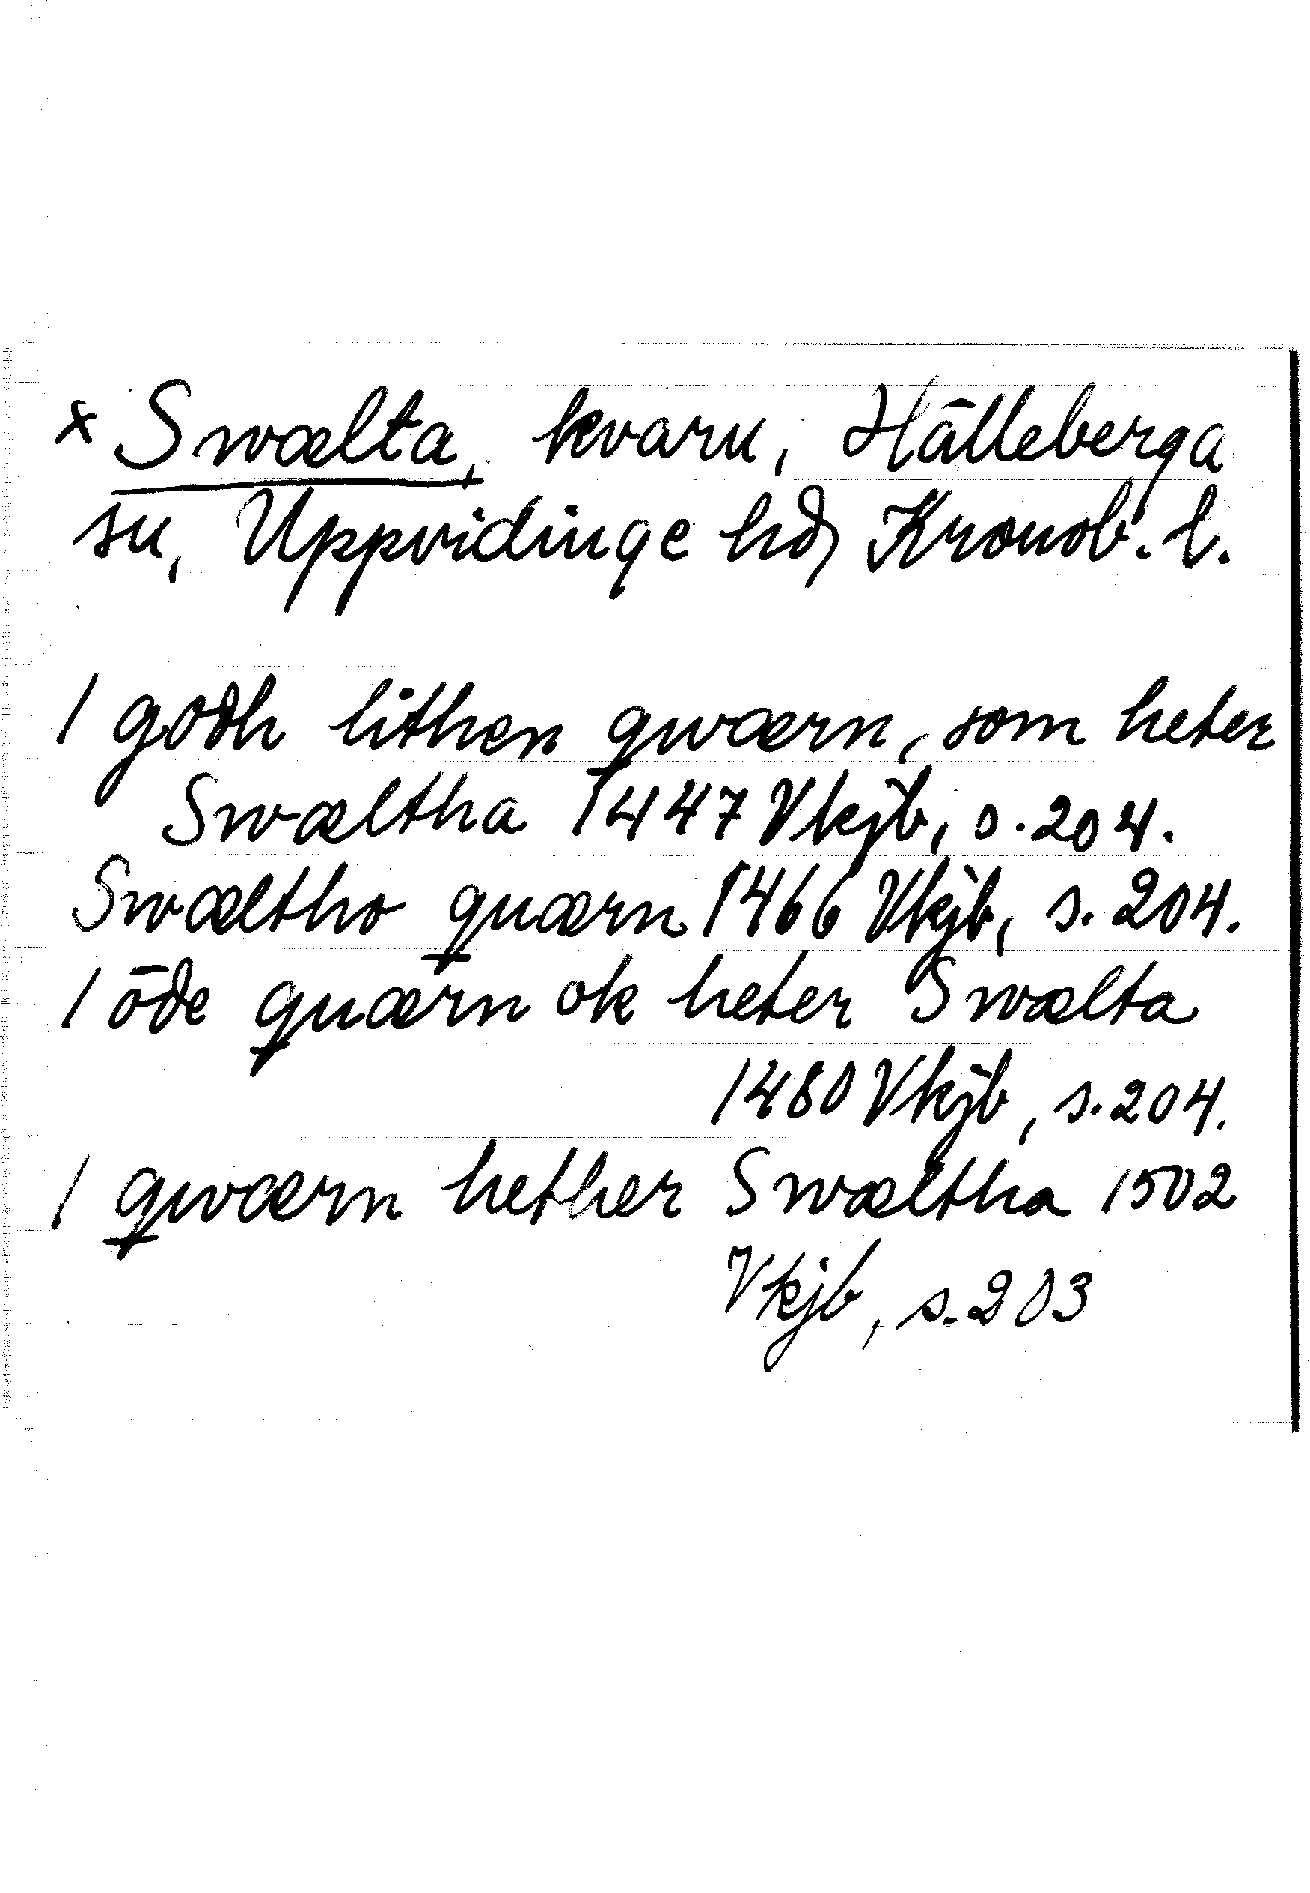 x Swælta, kvarn, Hälleberga
sn, Uppvidinge hd, Kronob. l.
1 godh lithen qwærn, som heter
Swæltha 1447 Vkjb, s. 204.
Swæltho quærn 1466 Vkjb, s. 204.
1 öde quærn ok heter Swælta
1480 Vkjb, s. 204.
1 qwærn hether Swæltha 1502
Vkjb, s. 203